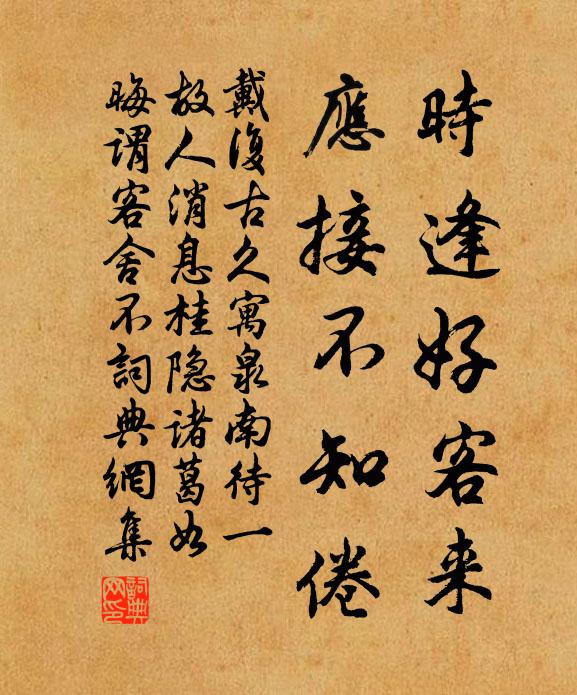 時逢好客来
應接不知倦
戴復古久寓泉南待一
故人消息桂隐諸葛如
晦謂客舍不詞典網集
詞典網印